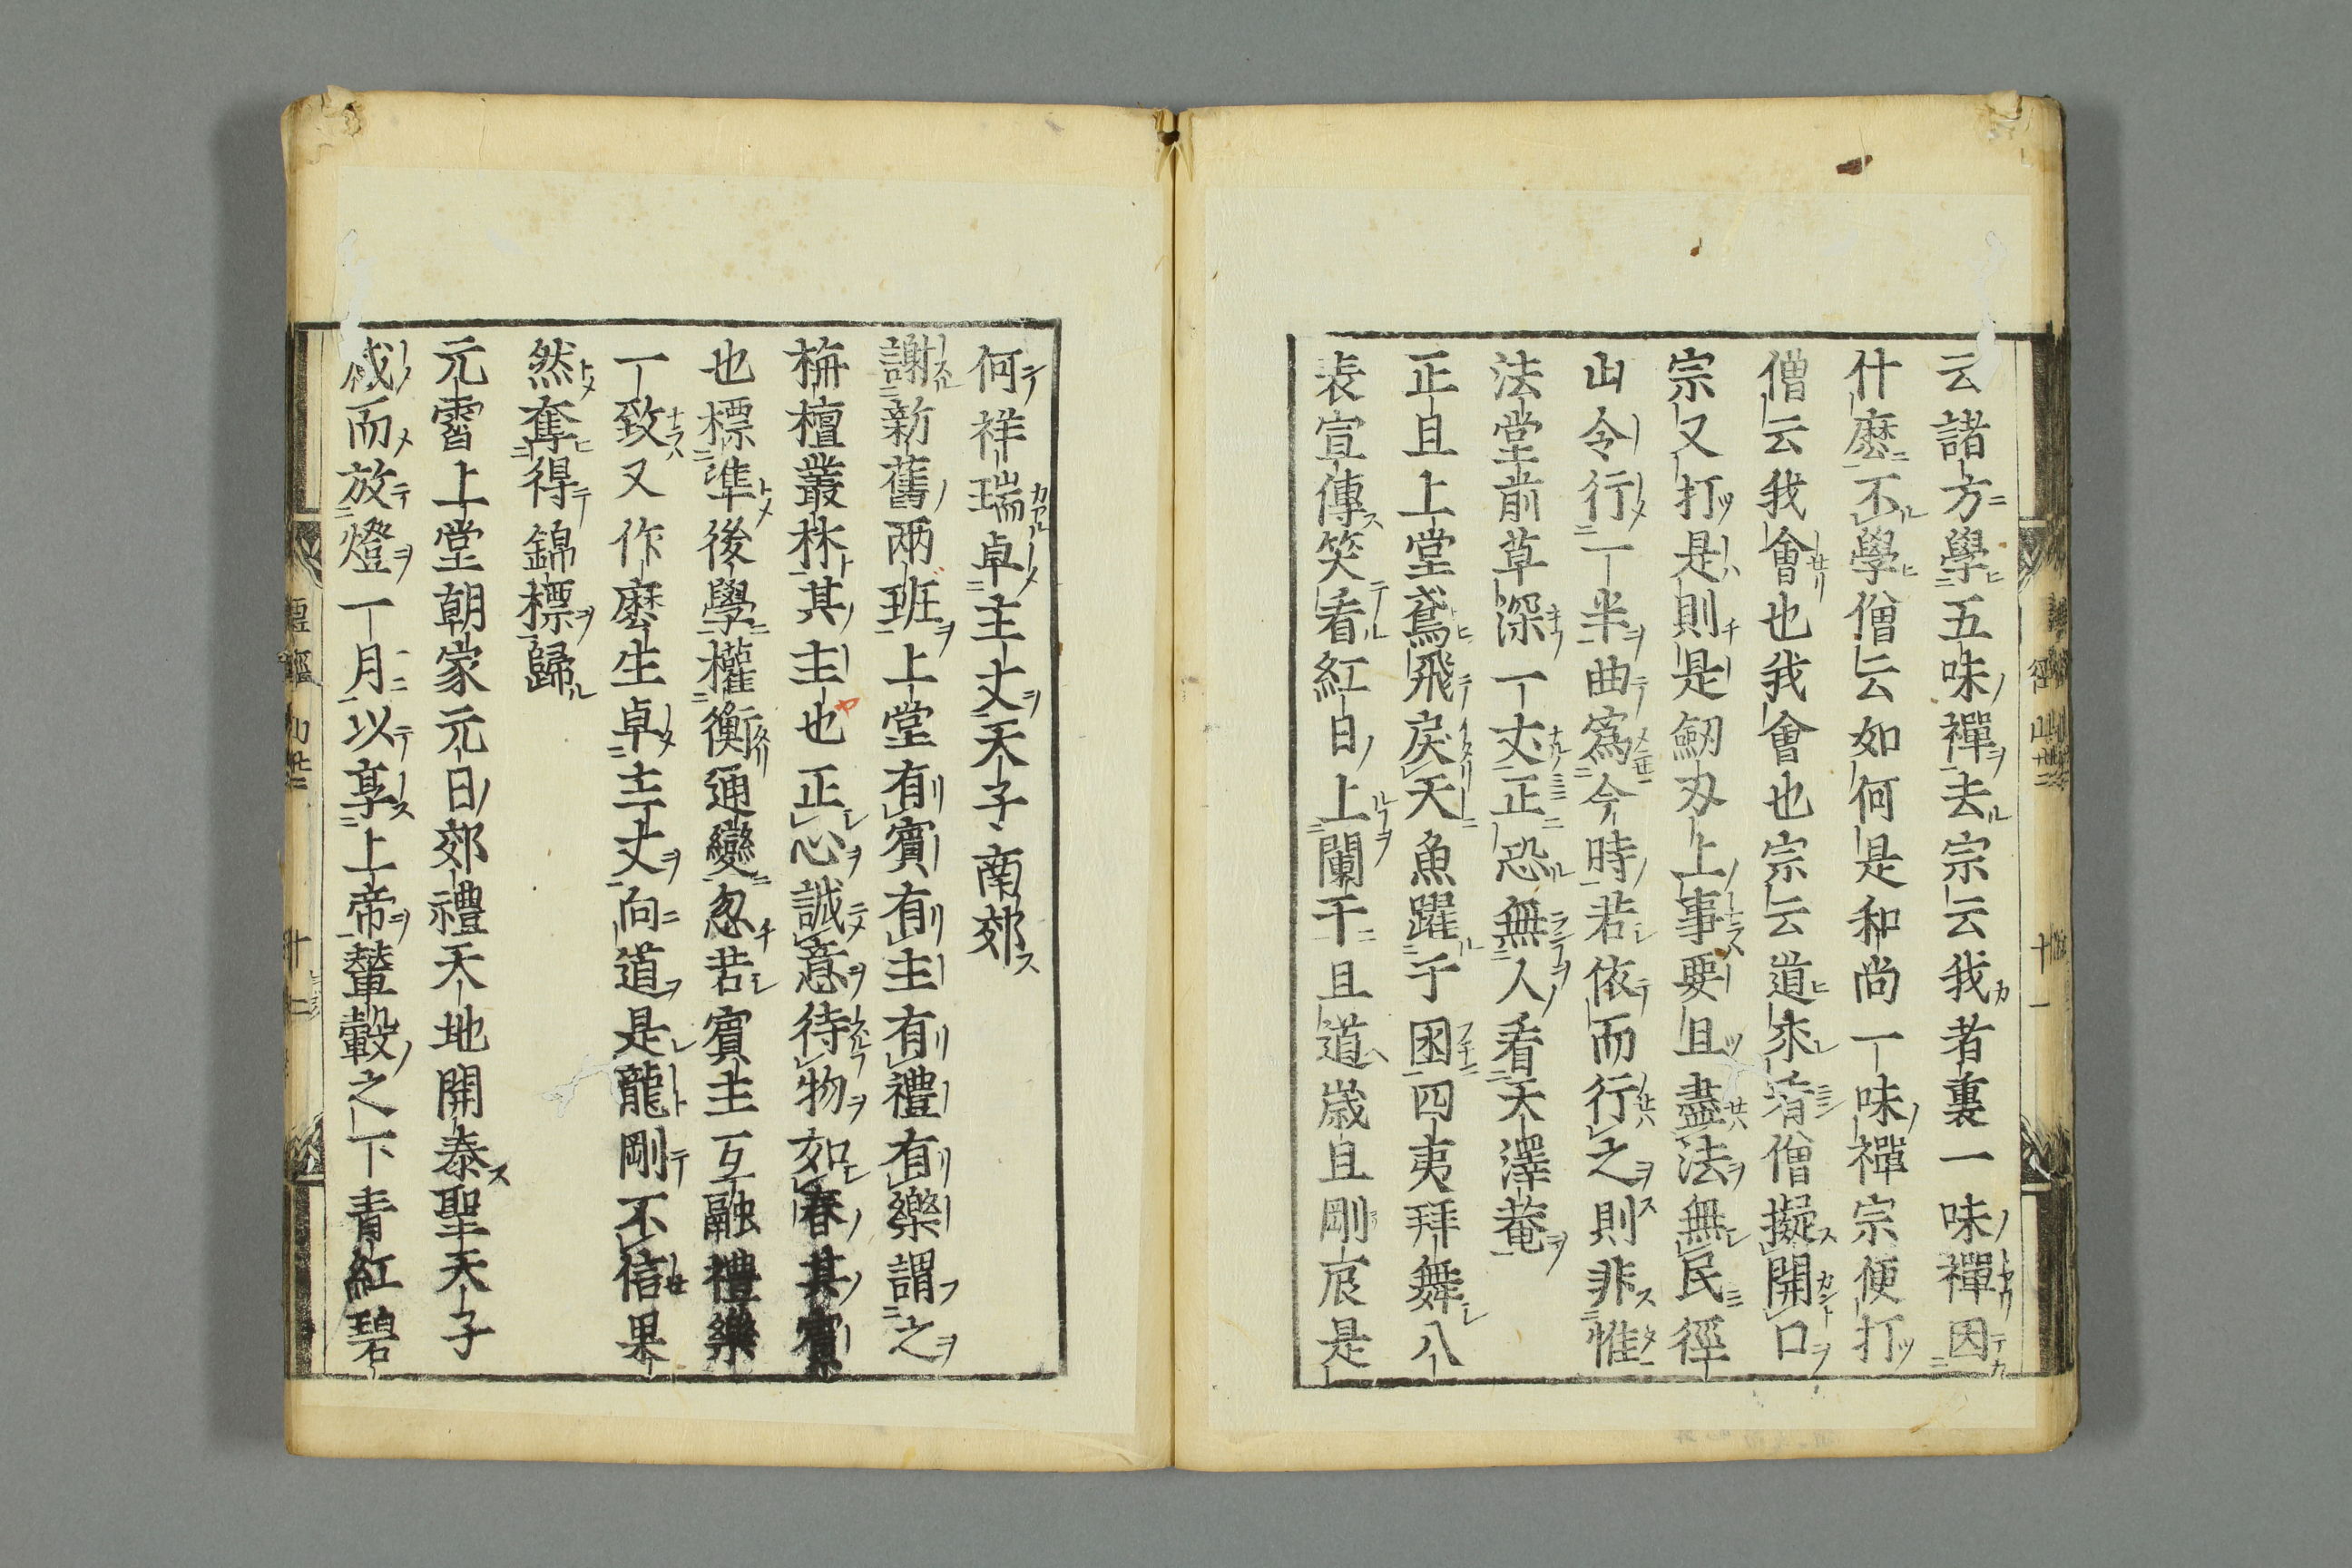 云諸方學五味禪去宗云我者裏一味禪因
什麽不學僧云如何是和尚一味禪宗便打
僧云我會也我會也宗云道來看僧擬開口
宗又打是則是劔刃上事要且盡法無民徑
山令行一半曲爲今時若依而行之則非惟
法堂前草深一丈正恐無人看天澤菴
正旦上堂鳶飛戾天魚躍于困四夷拜舞八
表宣傳笑看紅日上闌干且道歲旦剛宸是
何祥瑞卓主丈天子南郊
謝新舊兩班上堂有賓有主有禮有樂謂之
栴檀叢林其主也正心誠意待物如春其賓
也標準後學權衡通變忽若賓主互融禮樂
一致又作麽生卓主丈向道是龍剛不信果
然奪得錦標歸
元霄上堂朝家元日郊禮天地開泰聖天子
而放燈一月以享上帝輦轂之下青紅碧
徑山
十一